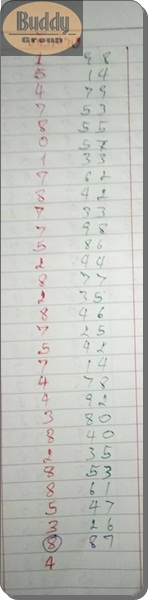 Buddy
Group
1 98
5 14
4 79
7 53
8 55
0 57
1 33
7 62
8 42
7 33
7 98
5 86
2 44
8 77
2 35
8 46
7 25
5 42
7 14
4 78
4 92
3 80
8 40
2 35
8 53
8 61
5 47
3 26
8 87
4